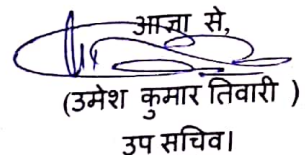 आज्ञा से,
(उमेश कुमार तिवारी )
उप सचिव।